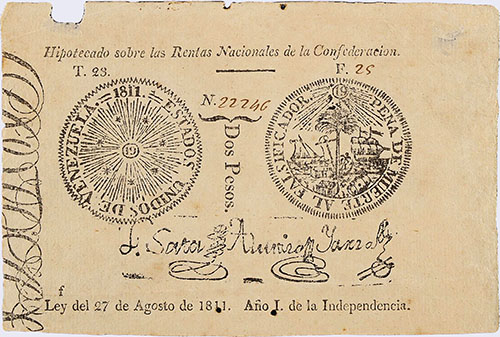 Hipotecado sobre las Rentas Nacionales de la Confederacion.
T. 23.
F. 25
N. 22246
ESTADOS UNIDOS DE VENEZUELA. 1811.
19
Dos Pesos.
PENA DE MUERTE AL FALSIFICADOR.
19
f
Ley del 27 de Agosto de 1811. Año I. de la Independencia.